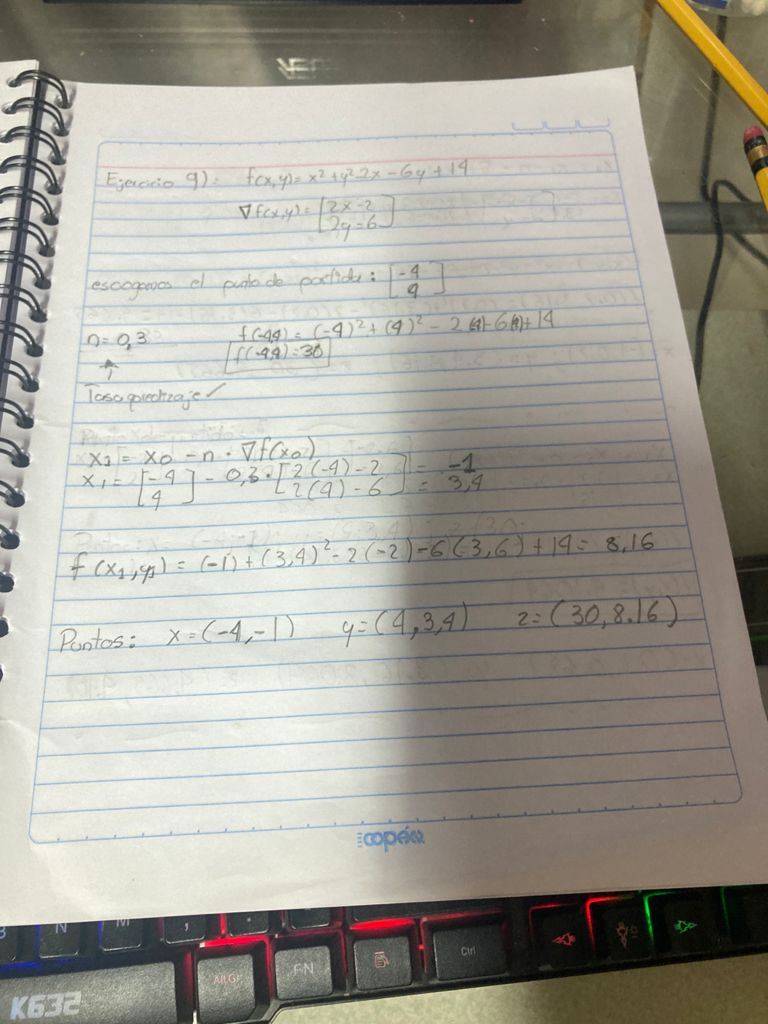 Ejercicio 9): f(x,y)= x² + y² - 2x - 6y + 14
∇f(x,y) = [2x - 2
2y = 6]
escogemos el punto de partida: [-4
4]
n = 0,3 f(-4,4) = (-4)² + (4)² - 2(4) - 6(4) + 14
f(-4,4) = 30
↑
Tasa
x1 = x0 - n · ∇f(x0)
x1 = [-4 - 0,3 · [2(-4) - 2 = -1
4] 2(4) - 6] = 3,4
f(x1,y1) = (-1) + (3,4)² - 2(-2) - 6(-3,6) + 14 = 8,16
Puntos: x = (-4,-1) y = (4,3,4) z = (30,8.16)
copán
B N M , . Ctrl
ALT GR FN
K632